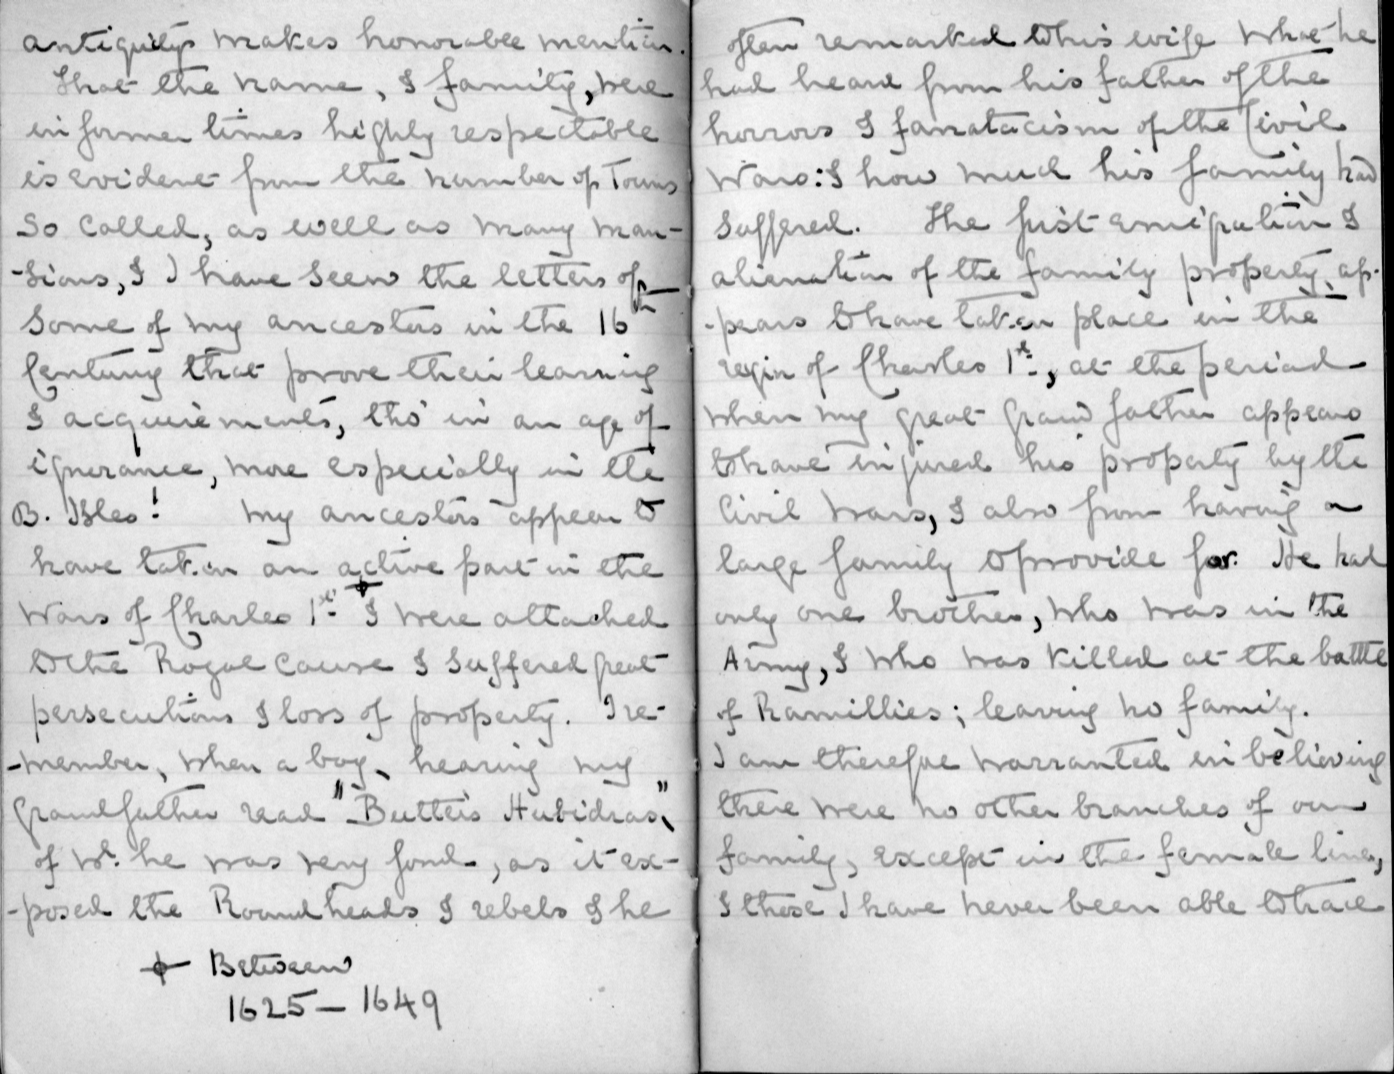 antiquity makes honorable mention.
That the name, & family, were
in former times highly respectable
is evident from the number of Towns
So Called, as well as many man-
-sions, & I have seen the letters of
Some of my ancestors in the 16th
Century that prove their learning
& acquirements, tho' in an age of
ignorance, more especially in the
B. Isles! My ancestors appear to
have taken an active part in the
Wars of Charles 1st & were attached
to the Royal Cause & suffered great
persecutions & loss of property. I re-
-member, when a boy, hearing my
grandfather read "Butler's Hubidras",
of wh. he was very fond, as it ex-
-posed the Roundheads & rebels & he
Between
1625 - 1649
often remarked to his wife what he
had heard from his father of the
horrors & fanatacism of the Civil
Wars: & how much his family had
suffered. The first &
alienation of the family property, ap-
-pears to have taken place in the
regin of Charles 1st, at the period
when my great grand father appears
to have injured his property by the
Civil Wars, & also from having a
large family to provide for. He had
only one brother, who was in the
Army, & who was killed at the battle
of Ramillies; leaving no family.
I am therefore warranted in believing
there were no other branches of our
family, except in the female line,
& these I have never been able to trace